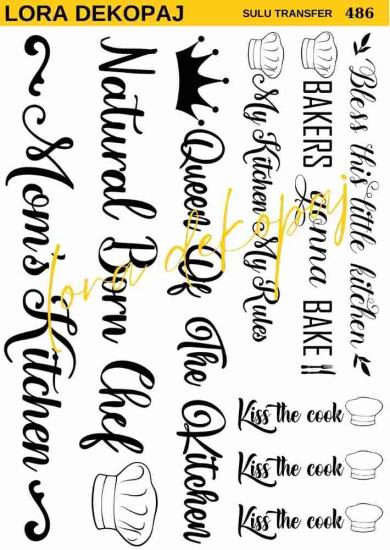 LORA DEKOPAJ
SULU TRANSFER 486
Mom's Kitchen
Natural Born Chef
Queen Of The Kitchen
My Kitchen My Rules
BAKERS gonna BAKE
Bless this little kitchen
Kiss the cook
Kiss the cook
Kiss the cook
lora dekopaj